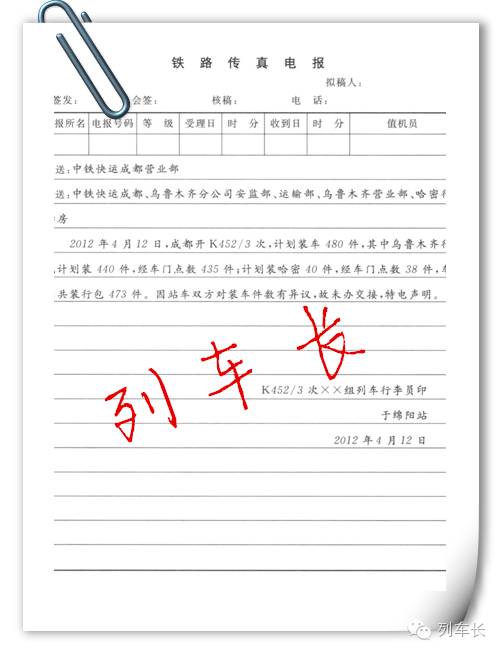 铁路传真电报
拟稿人：
签发： 会签： 核稿： 电 话：
报所名 电报号码 等 级 受理日 时 分 收到日 时 分 值机员
送：中铁快运成都营业部
送：中铁快运成都、乌鲁木齐分公司安监部、运输部、乌鲁木齐营业部、哈密行
房
2012年4月12日，成都开K452/3次，计划装车480件，其中乌鲁木齐行
计划装440件，经车门点数435件；计划装哈密40件，经车门点数38件，
共装行包473件。因站车双方对装车件数有异议，故未办交接，特电声明。
列车长
K452/3次××组列车行李员印
于绵阳站
2012年4月12日
列车长